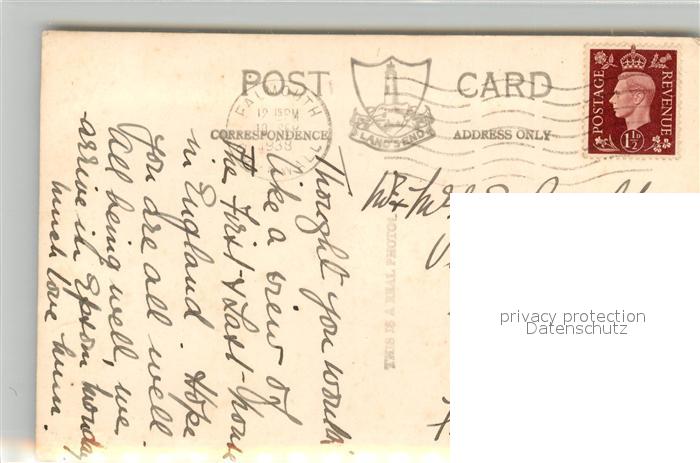 POST CARD
LAND'S END
CORRESPONDENCE
ADDRESS ONLY
FALMOUTH
12 15 PM
1938
POSTAGE
REVENUE
1½D
THIS IS A REAL PHOTO
Thought you would
like a view of
the First & Last house
in England. Hope
you are all well.
All being well, we
arrive in Epsom Monday
much love
Mr & Mrs
privacy protection
Datenschutz